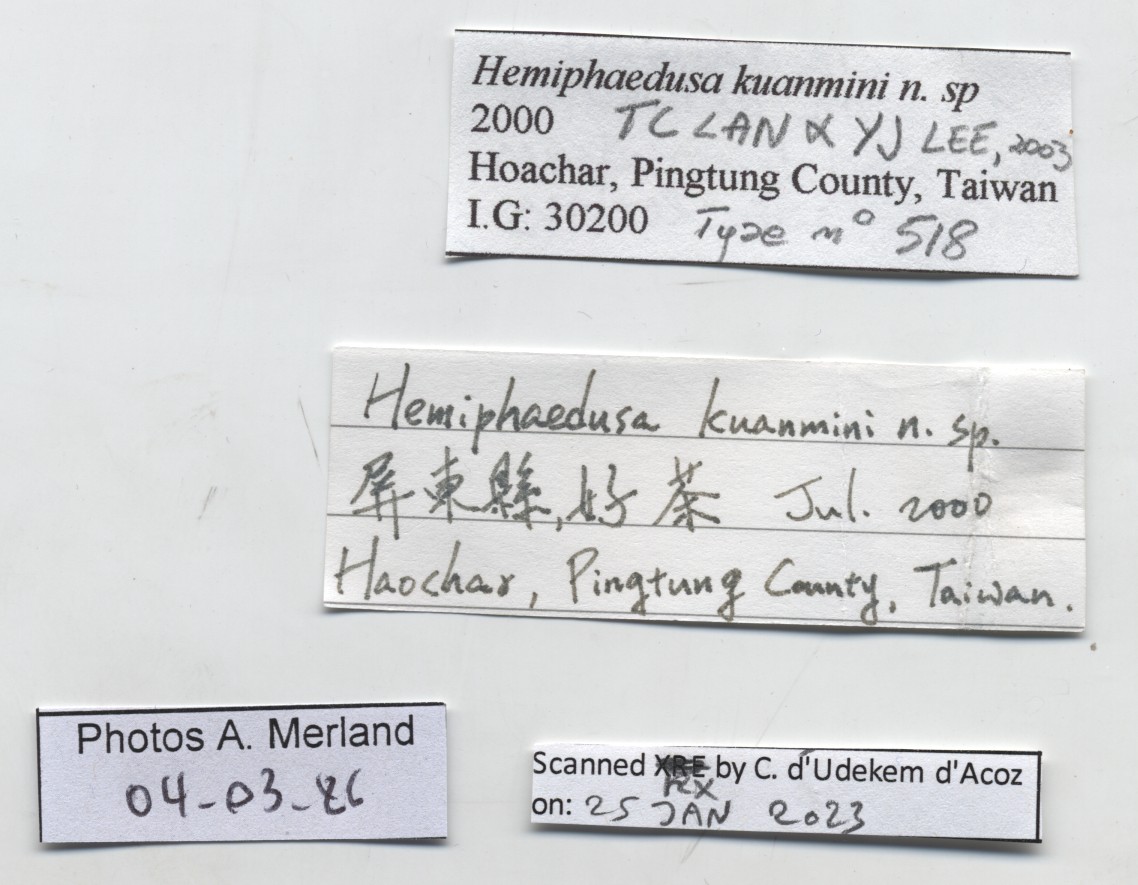 Hemiphaedusa kuanmini n. sp
2000 TC LAN & YJ LEE, 2003
Hoachar, Pingtung County, Taiwan
I.G: 30200 Type n° 518
Hemiphaedusa kuanmini n. sp.
屏東縣,好茶 Jul. 2000
Haochar, Pingtung County, Taiwan.
Photos A. Merland
04-03-
Scanned XRE by C. d'Udekem d'Acoz
RX
on: 25 JAN 2023